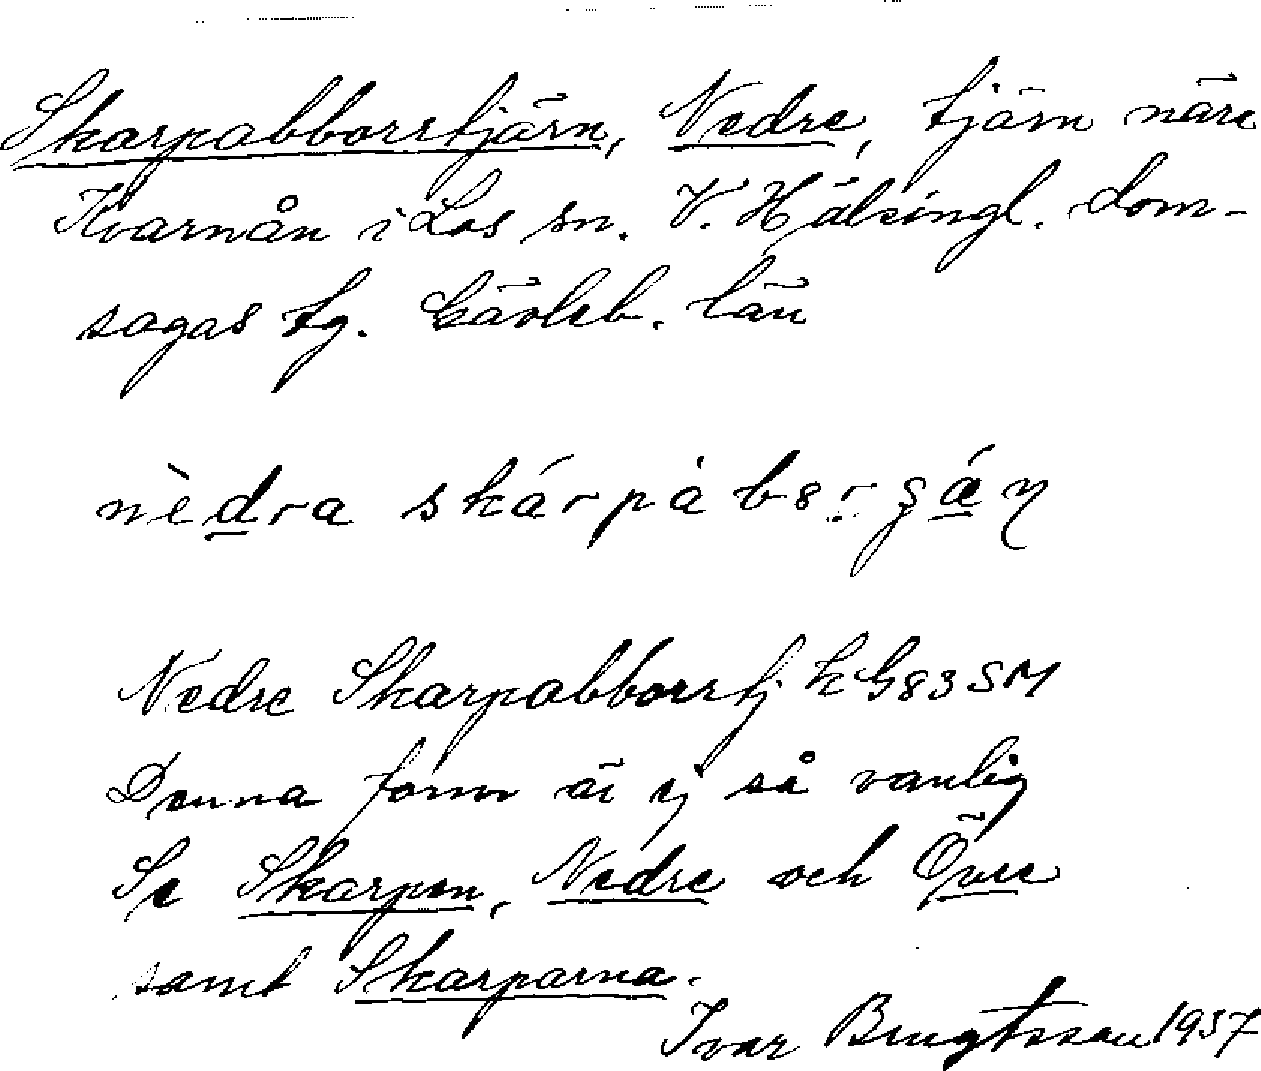 Skarpabborrtjärn, Nedre, tjärn nära
Kvarnån i Los sn. V. Hälsingl. dom-
sagas tg. Gävleb. län
nèdra skárpàb
Nedre Skarpabborrtj k G83SM
Denna form är ej så vanlig
Se Skarpen, Nedre och Övre
samt Skarparna.
Ivar Bengtsson 1937